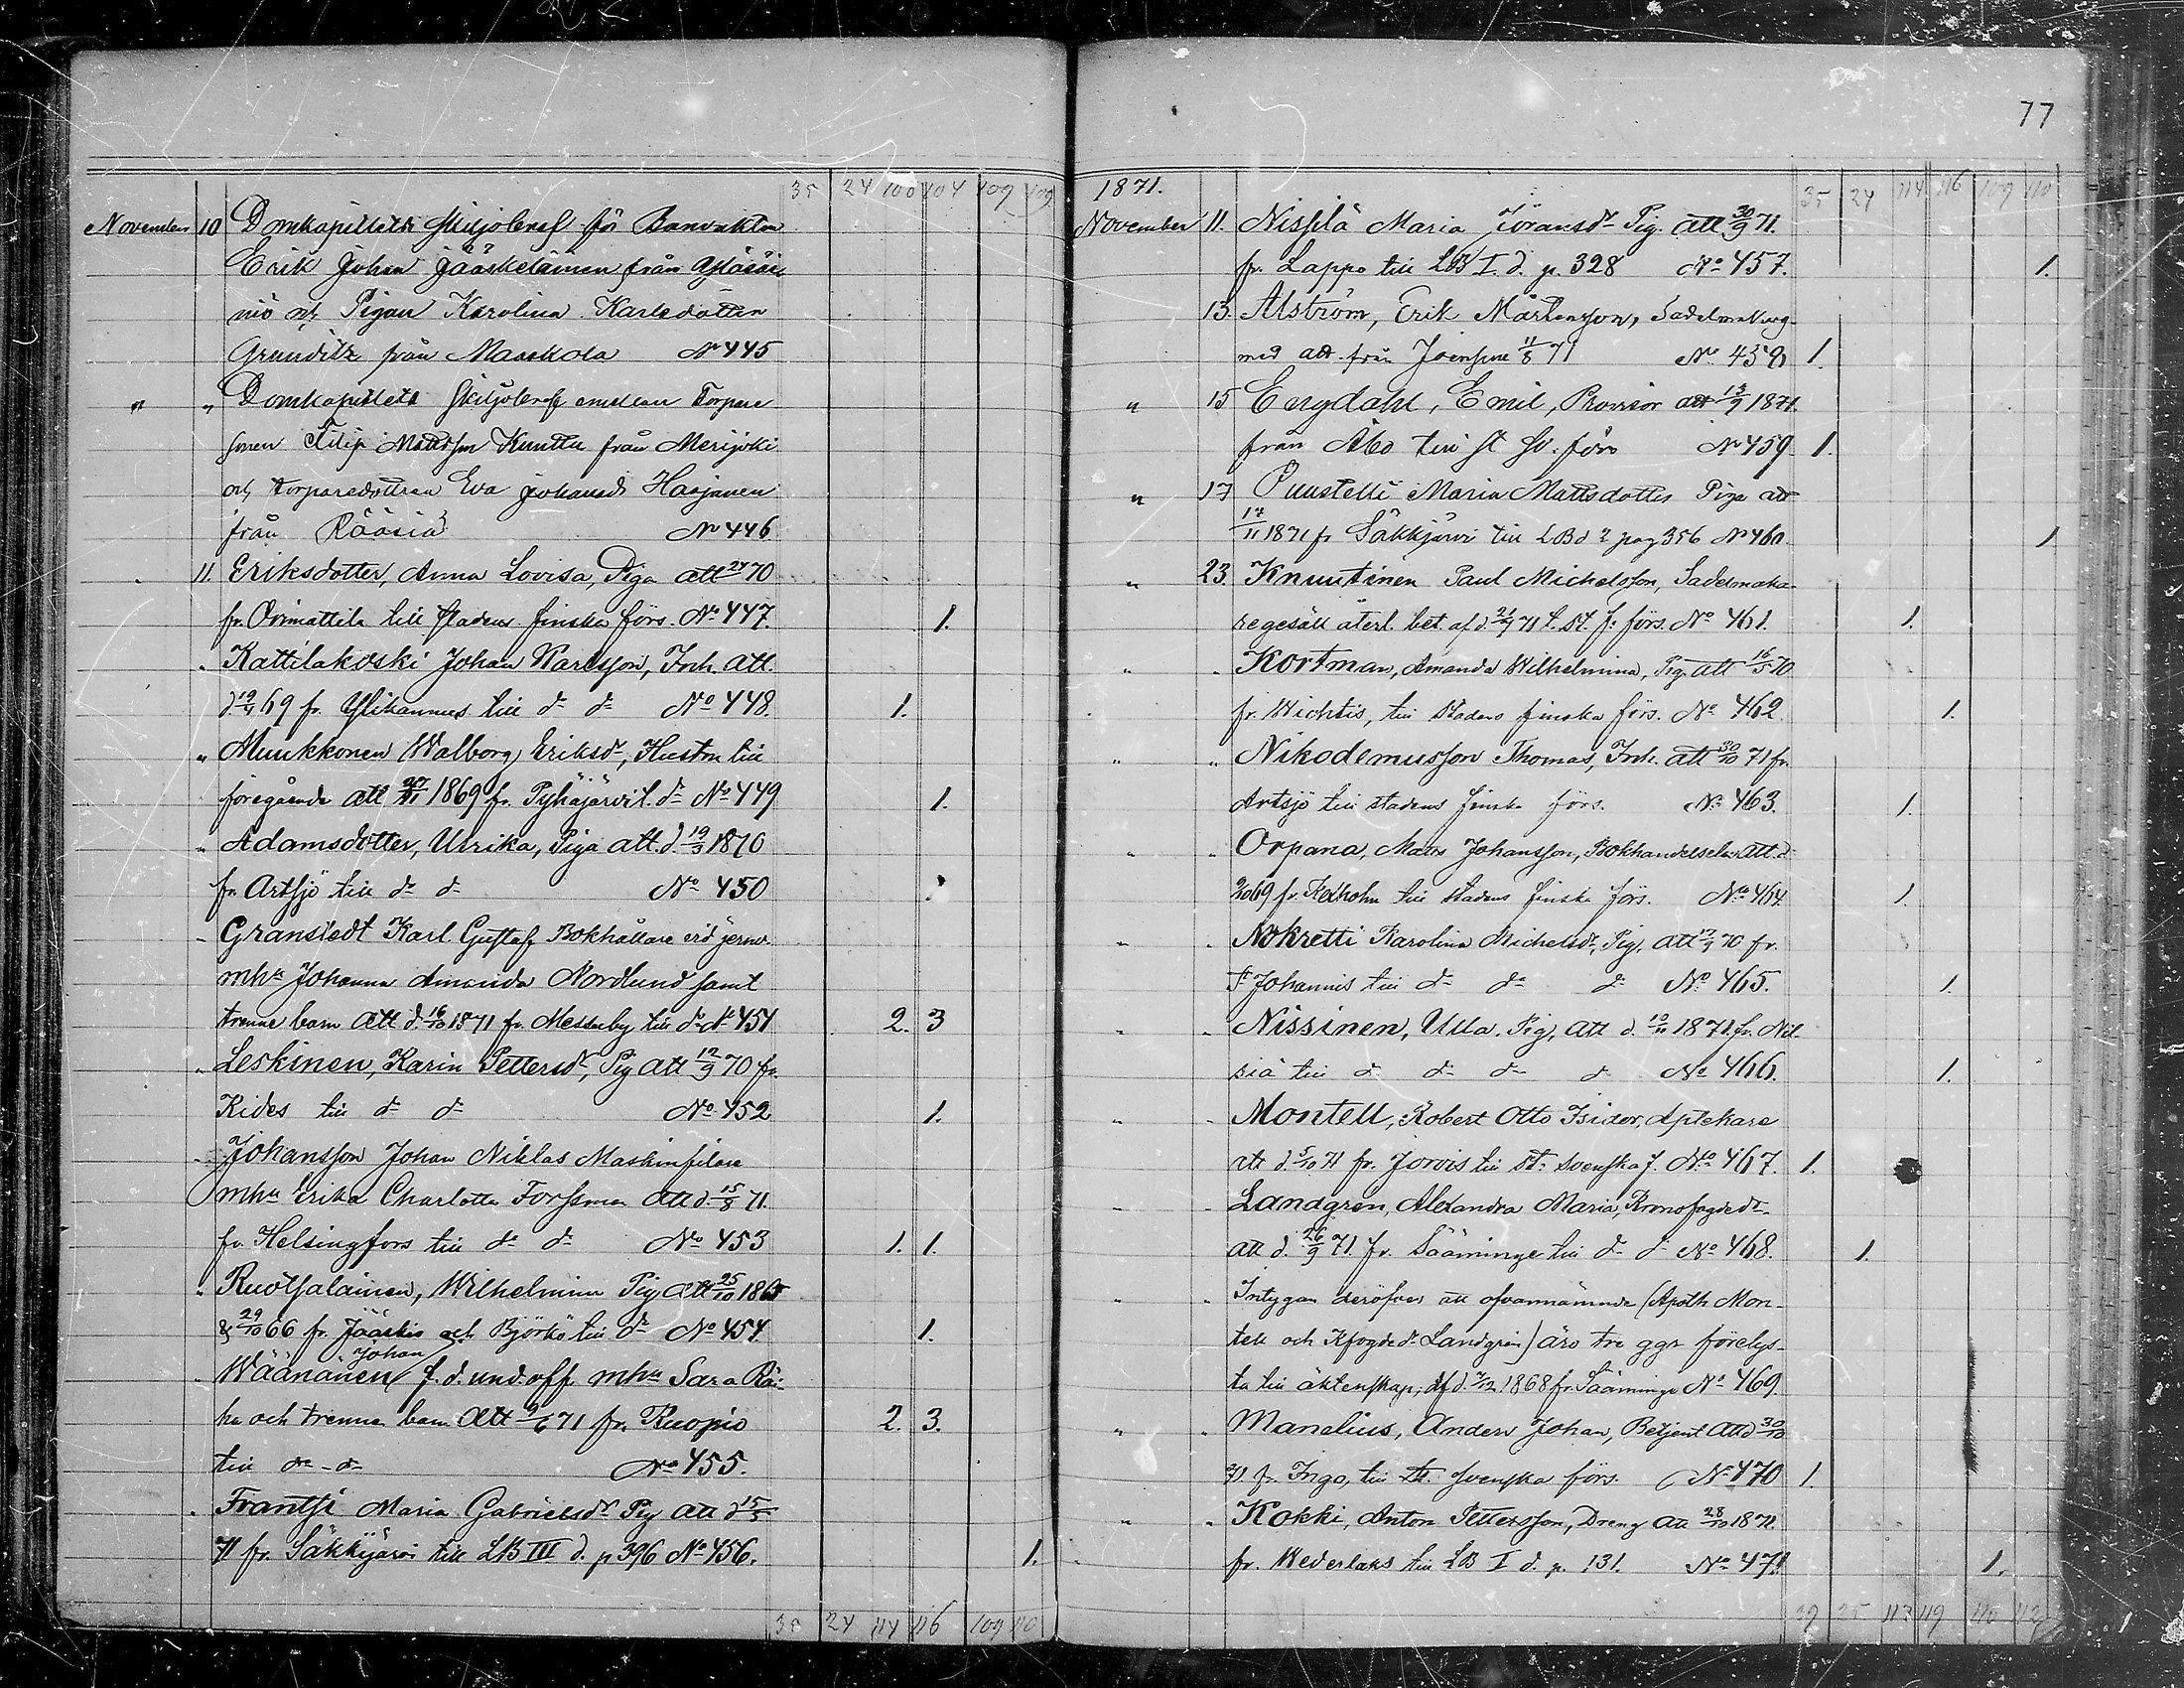 77
35 24 100 104 109 109
November 10 Domkapitlets skiljobref för Banvakten
Erik Johan Jääskeläinen från
och Pigan Karolina Karlsdotter
Grunditz från Maaskola No 445
" " Domkapitlets skiljobref emellan Torpare
sonen Filip Mattsson Kunttu från Merijoki
och torparedottren Eva Johansdr Haajanen
från Rääsiä No 446
11. Eriksdotter, Anna Lovisa, Piga att 70
fr. Orimattila till stadens finska förs. No 447. 1.
" Kattilakoski Johan Karlsson, Inh. att.
d. 69 fr. Ylikannus till do do No 448. 1.
" Muukkonen Walborg Eriksdr, Hustru till
föregående att 1869 fr. Pyhäjärvi t. do No 449 1.
" Adamsdotter, Ulrika, Piga att. d. 19/3 1870
fr. Artsjö till do do No 450
" Granstedt Karl Gustaf, Bokhållare vid jernv.
mhu Johanna Amanda Nordlund samt
trenne barn att d. 16/10 1871 fr. Messuby till do No 451 2. 3
" Leskinen, Karin Pettersdr, Pig att 12/9 70 fr.
Kides till do do No 452 1.
" Johansson Johan Niklas Maskinfilare
mhu Erika Charlotta Forssman att d. 15/8 71.
fr. Helsingfors till do do No 453 1. 1.
" Ruotsalainen, Wilhelmina Pig att 25/10 186
& 29/10 66 fr. Jääskis och Björkö till do No 454 1.
Johan
" Wäänänen f. d. und. off. mhu Sara Rä-
ha och trenne barn att 9/6 71 fr. Kuopio 2. 3.
till do - do No 455.
" Frantsi Maria Gabrielsdr Pig att d 15/5
71 fr. Säkkijärvi till LB III d. p 396 No 456. 1.
35 24 114 116 109 110
1871. 35 24 114 116 109 110
November 11. Nissilä Maria Göransdr Pig. att 30/9 71.
fr. Lappo till LB I. d. p. 328 No 457. 1.
13. Alström, Erik Mårtensson, Sadelmakareg
med att. från Joensuu 11/8 71 No 458 1.
" 15 Engdahl, Emil, Provisor att 13/9 1871.
från Åbo till st sv. förs No 459 1.
" 17 Puustelli Maria Mattsdotter Piga att
17/11 1871 fr Säkkjärvi till LBd 2 pag 356 No 460. 1
" 23. Knuutinen Paul Michelsson, Sadelmaka-
regesäll återl. bet. af d. 21/9 71 t. St. f. förs. No 461. 1.
" " Kortman, Amanda Wilhelmina, Pig. att 16/5 70
fr. Wichtis, till stadens finska förs. No 462. 1.
" " Nikodemusson Thomas, Inh. att 30/10 71 fr.
Artsjö till stadens finska förs. No 463. 1.
" " Orpana, Matts Johansson, Bokhandelselev att. d.
69 fr. Kexholm till stadens finska förs. No 464. 1.
" " Nokretti Karolina Michelsdr, Pig, att 70 fr.
St Johannis till do do do No 465. 1.
" " Nissinen, Ulla, Pig, att d. 1871. fr. Nil-
siä till do do do do No 466. 1.
" " Montell, Robert Otto Isidor, Aptekare
att d. 5/10 71 fr. Jorvis till St. svenska f. No 467. 1.
" " Landgren, Alexandra Maria, Kronofogdedr
att d. 26/9 71. fr. Sääminge till do do No 468. 1.
" " Intygan deröfver att ofvannämnde (Apoth Mon-
tell och Kfogdedr Landgren) äro tre ggr förelys-
ta till äktenskap; af d. 7/12 1868 fr. Sääminge No 469.
" " Manelius, Anders Johan, Betjent att d 30/10
71. fr. Ingo, till St. svenska förs. No 470 1.
" " Kokki, Anton Pettersson, Dreng att 28/10 1871.
fr. Wederlaks till LB I d. p. 131. No 471 1.
39 25 113 119 110 112